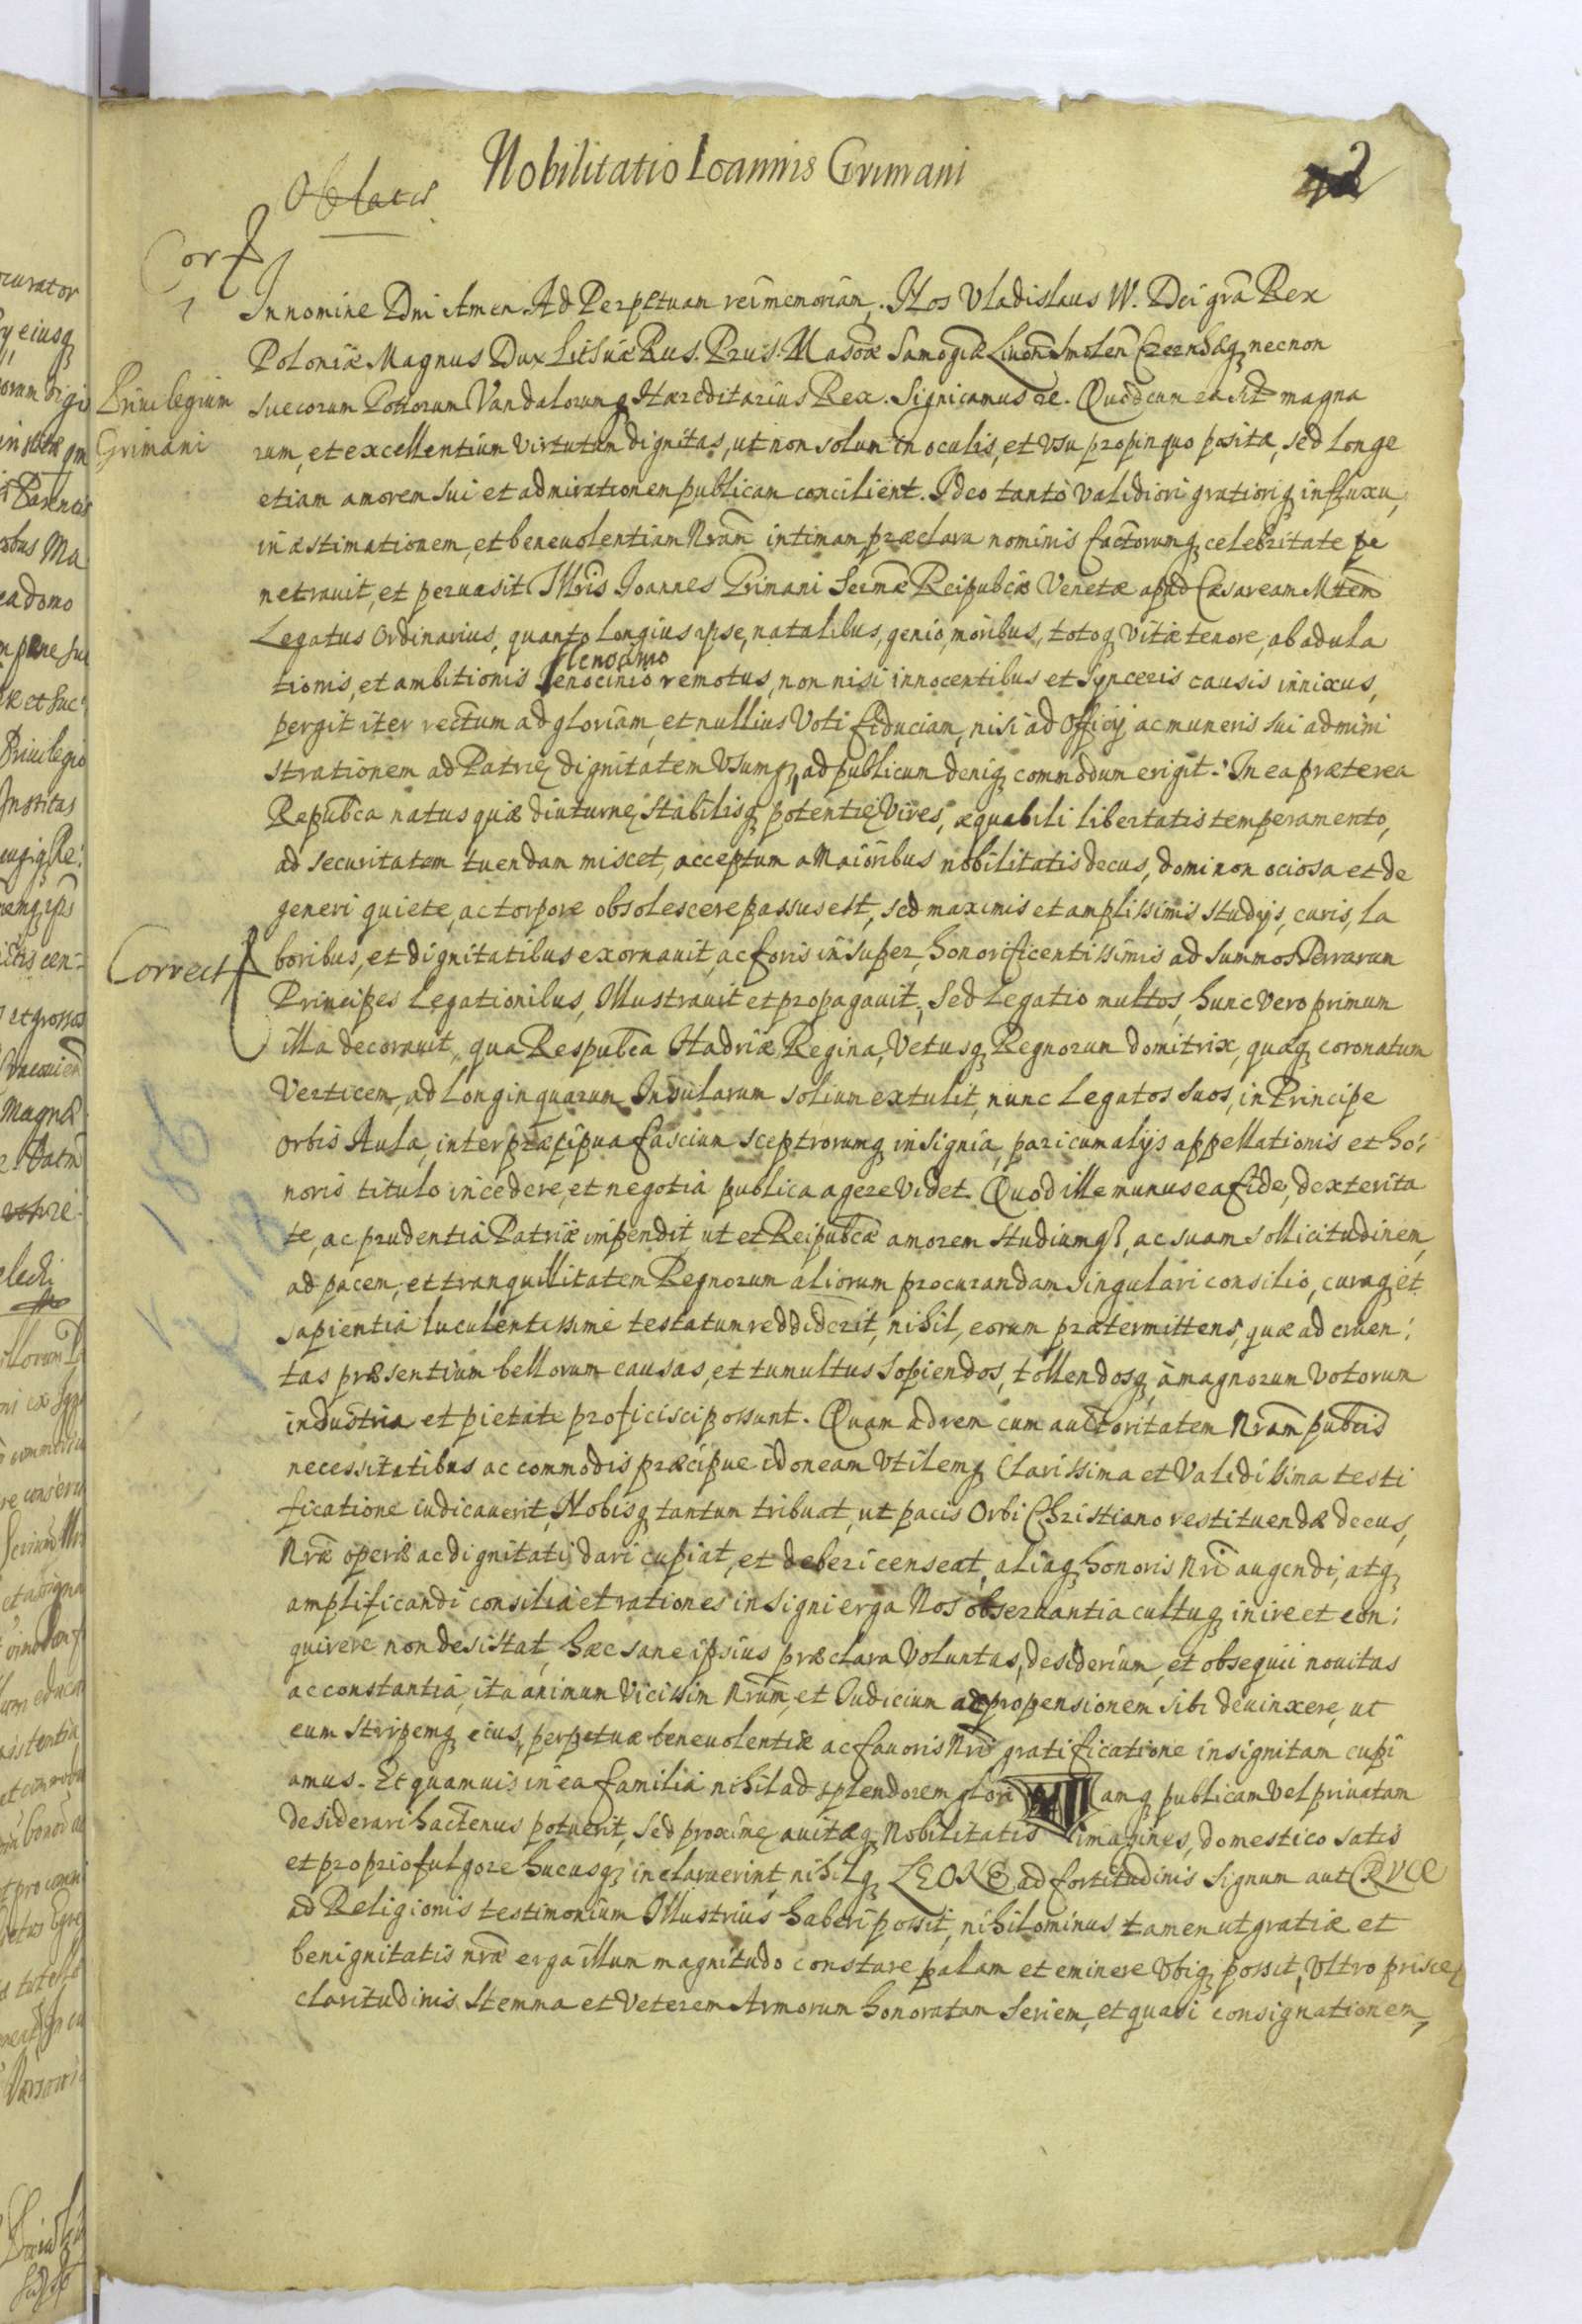 Nobilitatio Ioannis Grimani
Oblatis
2
Corr
Privilegium
Grimani
Correct
In nomine Dni Amen. Ad Perpetuam rei memoriam. Nos Vladislaus IV. Dei grã Rex
Poloniæ Magnus Dux Lithuæ Rus. Prus. Masoæ Samogiæ Livonæ Smolen Czernihæq necnon
Suecorum Gottorum Vandalorumq Hæreditarius Rex. Significamus &c. Quod cum ea sit magna
rum, et excellentium virtutum dignitas, ut non solum in oculis, et usu propinquo positæ, sed longe
etiam amorem sui et admirationem publicam concilient. Ideo tantò validiori gratioriq influxu,
in æstimationem, et beneuolentiam Nrãm intimam præclara nominis factorumq celebritate pe
netrauit, et peruasit Illris Joannes Grimani Sermæ Reipubcæ Venetæ apud Cæsaream Mttem
Legatus Ordinarius, quanto longius ipse, natalibus, genio, moribus, totoq vitæ tenore, ab adula
tionis, et ambitionis lenocinio remotus, non nisi innocentibus et synceris causis innixus,
pergit iter rectum ad gloriam, et nullius Voti fiduciam, nisi ad Officij ac muneris sui admini
strationem ad Patrię dignitatem Vsumq, ad publicum deniq commodum erigit. In ea præterea
Repubca natus quæ diuturnę stabilisq potentię vires, æquabili libertatis temperamento,
ad securitatem tuendam miscet, acceptum a Maioribus nobilitatis decus, domi non ociosa et de
generi quiete, ac torpore obsolescere passus est, sed maximis et amplissimis studijs, curis, la
boribus, et dignitatibus exornauit, ac foris insuper, honorificentissimis ad summos Terrarum
Principes Legationibus, Illustrauit et propagauit, Sed Legatio multos, hunc vero primum
illa decorauit, qua Respubca Hadriæ Regina, Vetusq Regnorum domitrix, quæq coronatum
Verticem, ad longinquarum Insularum solium extulit, nunc Legatos suos, in Principe
Orbis Aula, inter præcipua fascium sceptrorumq insignia, pari cum alijs appellationis et ho:
noris titulo incedere, et negotia publica agere videt. Quod ille munus ea fide, dexterita
te, ac prudentia Patriæ impendit, ut et Reipubcæ amorem studiumq, ac suam sollicitudinem,
ad pacem, et tranquillitatem Regnorum aliorum procurandam singulari consilio, curaq et
sapientia luculentissime testatum reddiderit, nihil, eorum prætermittens, quæ ad cruen:
tas præsentium bellorum causas, et tumultus sopiendos, tollendosq à magnorum Votorum
industria et pietate proficisci possunt. Quam ad rem cum auctoritatem Nrãm pubcis
necessitatibus ac commodis præcipue idoneam Vtilemq Clarissima et Validissima testi
ficatione iudicauerit, Nobisq tantum tribuat, ut pacis Orbi Christiano restituendæ decus,
Nræ operæ ac dignitati dari cupiat, et deberi censeat, aliaq honoris Nri augendi, atq
amplificandi consilia et rationes insigni erga Nos obseruantia cultuq inire et con:
quirere non desistat, hæc sane ipsius præclara Voluntas, desiderium, et obsequii nouitas
ac constantia, ita animum Vicissim Nrum, et Iudicium ac propensionem sibi deuinxere, ut
eum stirpemq eius, perpetuæ beneuolentiæ ac fauoris Nri gratificatione insignitam cupi
amus. Et quamuis in ea familia nihil ad splendorem glori amq publicam vel priuatam
desiderari hactenus potuerit, sed proximę auitæq Nobilitatis imagines, domestico satis
et proprio fulgore hucusq inclaruerint, nihilq LEONE ad fortitudinis signum aut CRUCE
ad Religionis testimonium Illustrius haberi possit, nihilominus tamen ut gratiæ et
benignitatis nræ erga illum magnitudo constare palam et eminere Vbiq possit, Vltro priscę
claritudinis Stemma et Veterem Armorum honoratam Seriem, et quasi consignationem,